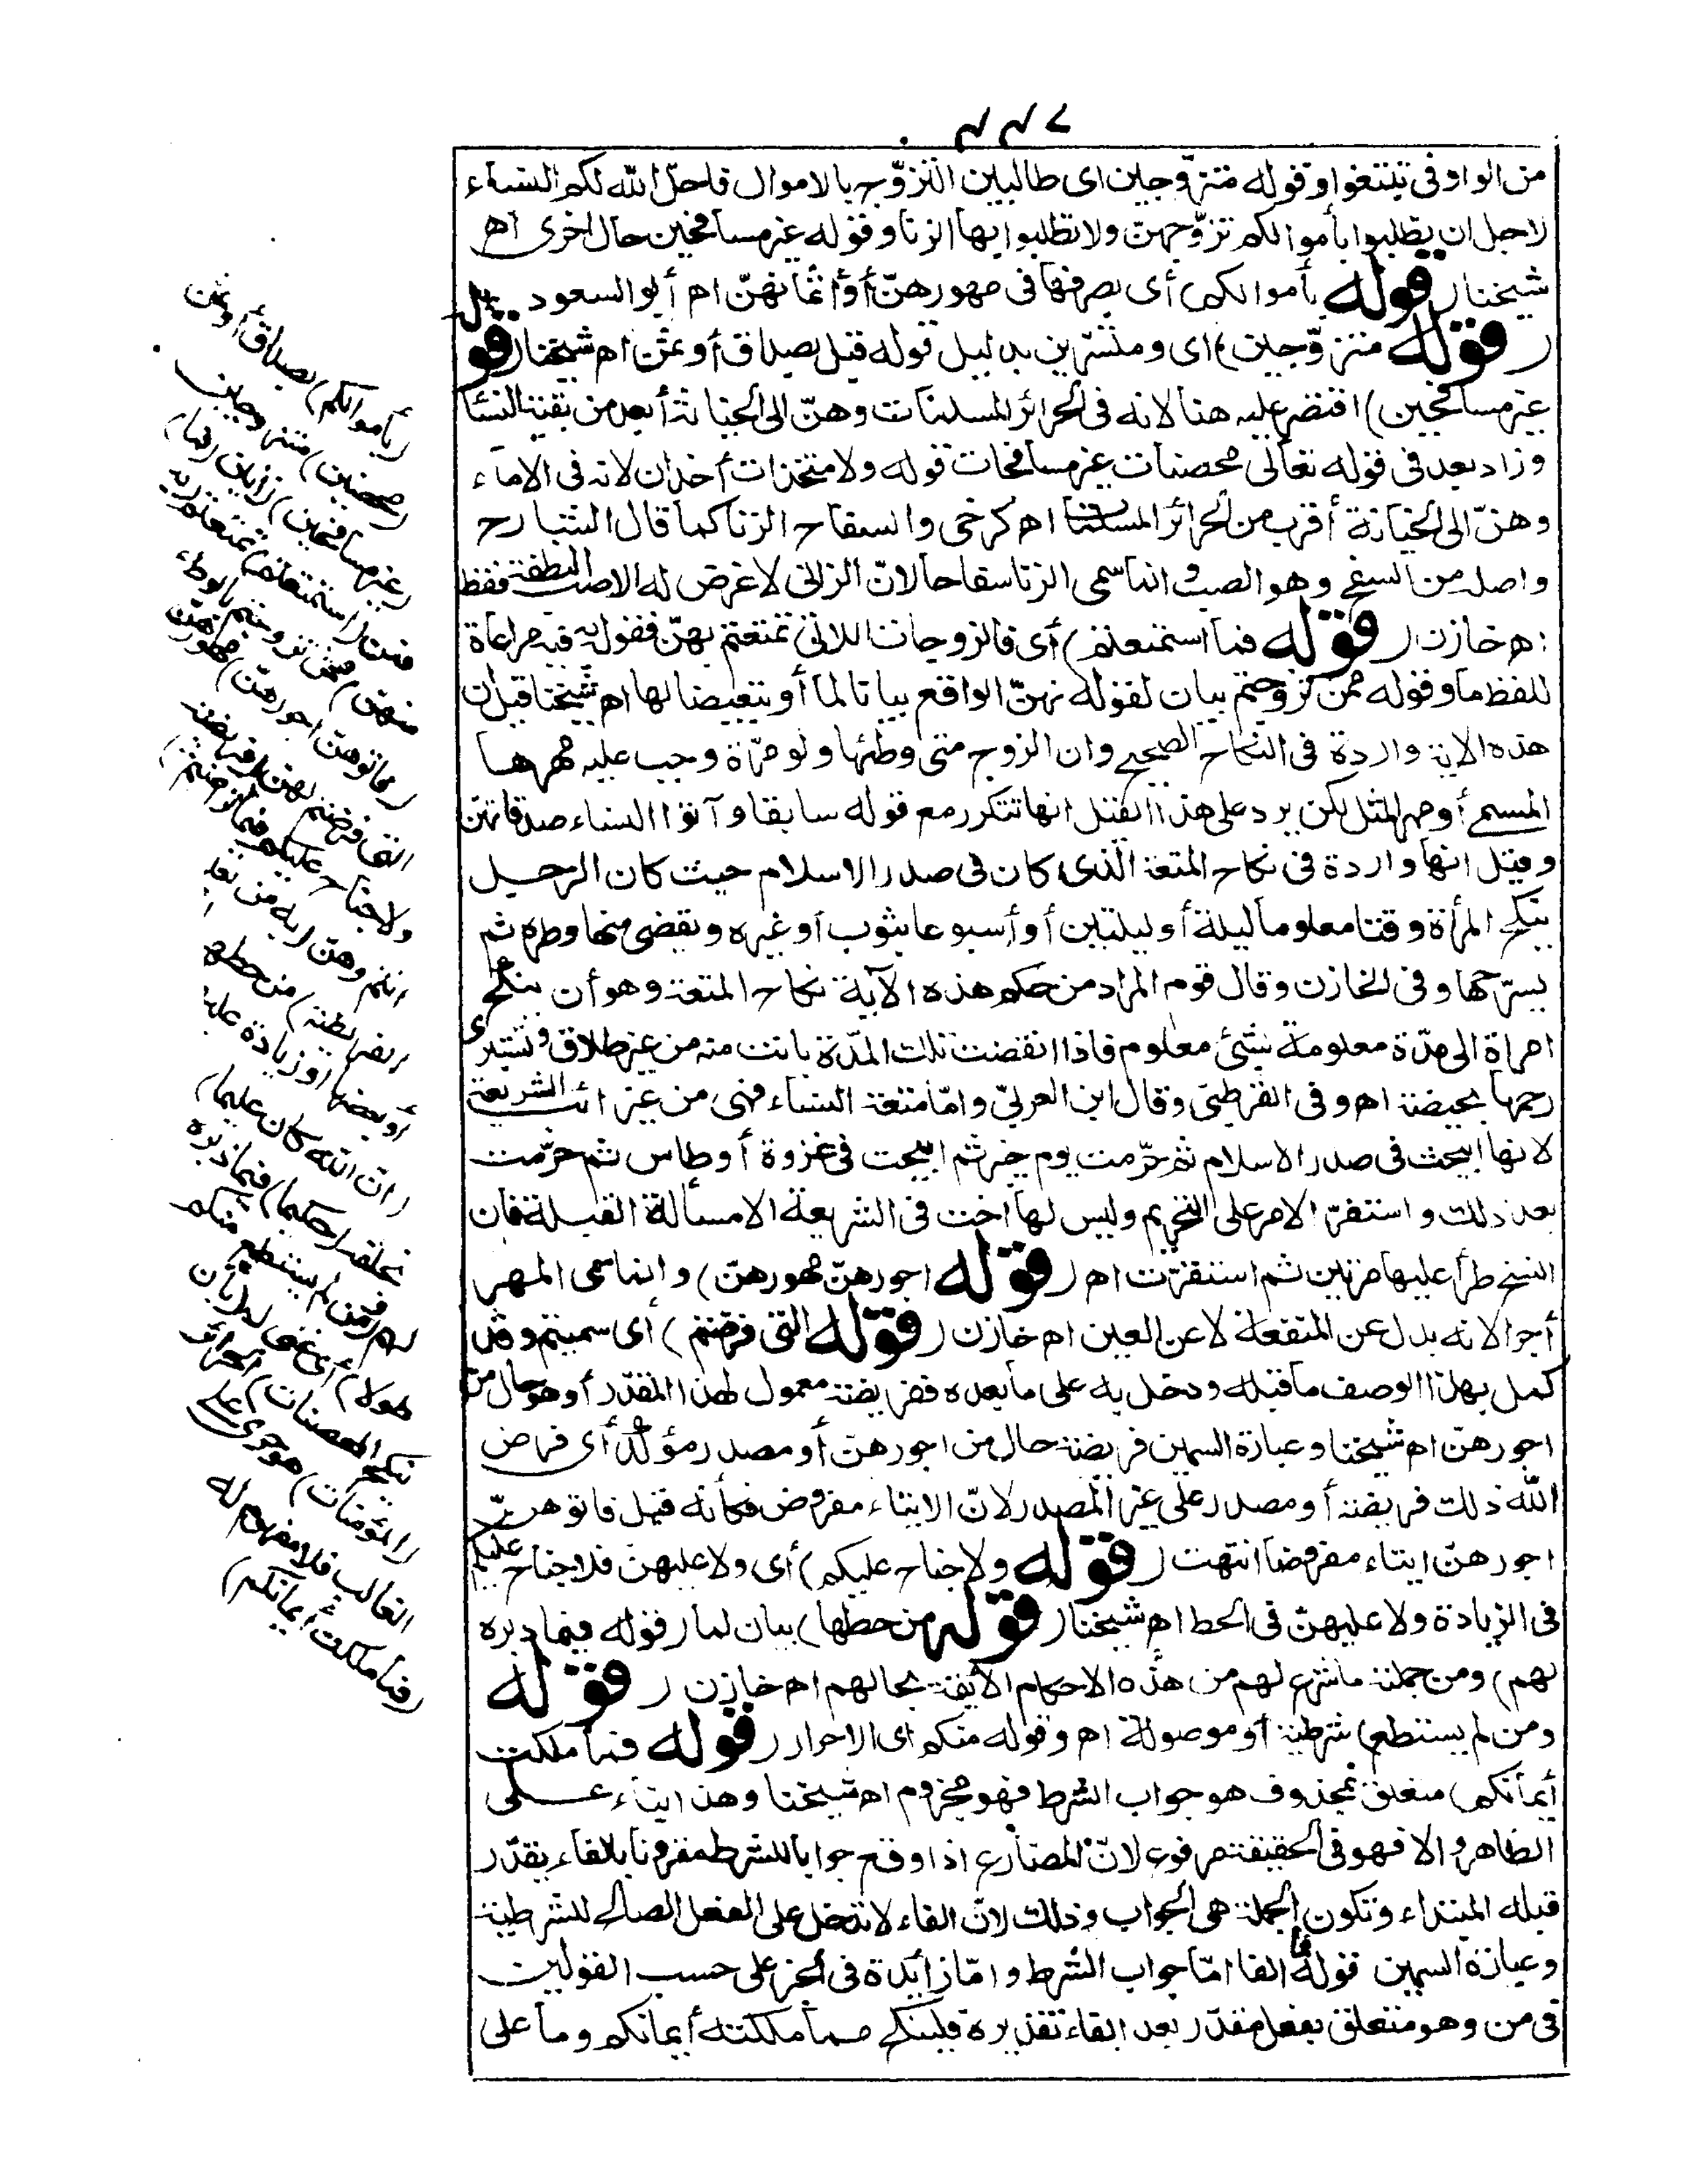 من الواو في تبتغوا وقوله متزوّجين اى طالبين التزوّج بالاموال فاحل الله لكم النساء
لاجل ان تطلبوا بأموالكم تزوّجهنّ ولا تطلبوا بها الزنا وقوله غير مسافحين حال اخرى اه
شيخنا (قوله بأموالكم) أى بصرفها فى مهورهنّ أو أثمانهنّ اه أبو السعود
(قوله متزوّجين) اى ومتسرّين بدليل قوله قبل بصداق أو ثمن اه شيخنا (قوله
غير مسافحين) اقتصر عليه هنا لانه فى الحرائر المسلمات وهنّ الى الخيانة أبعد من بقية النساء
وزاد بعد فى قوله تعالى محصنات غير مسافحات قوله ولا متخذات أخدان لانه فى الاماء
وهنّ الى الخيانة أقرب من الحرائر المسلمات اه كرخى والسفاح الزنا كما قال الشارح
واصله من السفح وهو الصب وانما سمى الزنا سفاحا لانّ الزانى لا غرض له الا صب النطفة فقط
اه خازن (قوله فما استمتعتم) أى فالزوجات اللاتى تمتعتم بهنّ فقوله به فيه مراعاة
للفظ ما وقوله ممن تزوجتم بيان لقوله منهنّ الواقع بيانا لما أو تبعيضا لها اه شيخنا قيل ان
هذه الاية واردة فى النكاح الصحيح وان الزوج متى وطئها ولو مرّة وجب عليه مهرها
المسمى أو مهر المثل لكن يرد على هذا القيل انها تتكرر مع قوله سابقا وآتوا النساء صدقاتهن
وقيل انها واردة فى نكاح المتعة الذى كان فى صدر الاسلام حيث كان الرجل
ينكح المرأة وقتا معلوما ليلة أو ليلتين أو أسبوعا بثوب أو غيره ويقضى منها وطره ثم
يسرّحها وفى الخازن وقال قوم المراد من حكم هذه الآية نكاح المتعة وهو أن ينكح
امراة الى مدّة معلومة بشئ معلوم فاذا انقضت تلك المدّة بانت منه من غير طلاق وتستبرى
رحمها بحيضة اه وفى القرطبى وقال ابن العربىّ وامّا متعة النساء فهى من غرائب الشريعة
لانها ابيحت فى صدر الاسلام ثم حرّمت يوم خيبر ثم ابيحت فى غزوة أوطاس ثم حرّمت
بعد ذلك واستقرّ الامر على التحريم وليس لها اخت فى الشريعة الا مسألة القبلة فان
النسخ طرأ عليها مرتين ثم استقرّت اه (قوله اجورهنّ مهورهنّ) وانما سمى المهر
أجرا لانه بدل عن المنفعة لا عن العين اه خازن (قوله التى فرضتم) أى سميتم وقد
كمل بهذا الوصف ما قبله ودخل به على ما بعده ففريضة معمول لهذا المقدّر أو هو حال من
اجورهنّ اه شيخنا وعبارة السمين فريضة حال من اجورهنّ أو مصدر مؤكد أى فرض
الله ذلك فريضة أو مصدر على غير المصدر لانّ الايتاء مفروض فكأنه قيل فاتوهنّ
اجورهنّ ايتاء مفروضا انتهت (قوله ولا جناح عليكم) أى ولا عليهن فلا جناح عليكم
فى الزيادة ولا عليهنّ فى الحط اه شيخنا (قوله من حطها) بيان لما (قوله فيما دبره
لهم) ومن جملته ما شرع لهم من هذه الاحكام اللائقة بحالهم اه خازن (قوله
ومن لم يستطع) شرطية أو موصولة اه وقوله منكم اى الاحرار (قوله فمما ملكت
أيمانكم) متعلق بمحذوف هو جواب الشرط فهو مجزوم اه شيخنا وهذا بناء على
الظاهر والا فهو فى الحقيقة مرفوع لانّ المضارع اذا وقع جوابا للشرط مقرونا بالفاء يقدّر
قبله المبتداء وتكون الجملة هى الجواب وذلك لانّ الفاء لا تدخل على الفعل الصالح للشرطية
وعبارة السمين قوله فمما الفا امّا جواب الشرط وامّا زائدة فى الخبر على حسب القولين
فى من وهو متعلق بفعل مقدّر بعد الفاء تقديره فلينكح مما ملكته أيمانكم وما على
(بأموالكم) بصداق أو ثمن
(محصنين) متزوجين
(غير مسافحين) زانين (فما)
فمن (استمتعتم) تمتعتم (به
منهن) ممن تزوجتم بالوطء
(فاتوهن اجورهنّ) مهورهن
التى فرضتم لهن (فريضة
ولا جناح عليكم فيما تراضيتم)
انتم وهن (به من بعد
الفريضة) من حطها
أو بعضها او زيادة عليها
(ان الله كان عليما)
بخلقه (حكيما) فيما دبره
لهم (ومن لم يستطع منكم
طولا) أى غنى ل(أن
ينكح المحصنات) الحرائر
(المؤمنات) هو جرى على
الغالب فلا مفهوم له
(فمما ملكت أيمانكم)